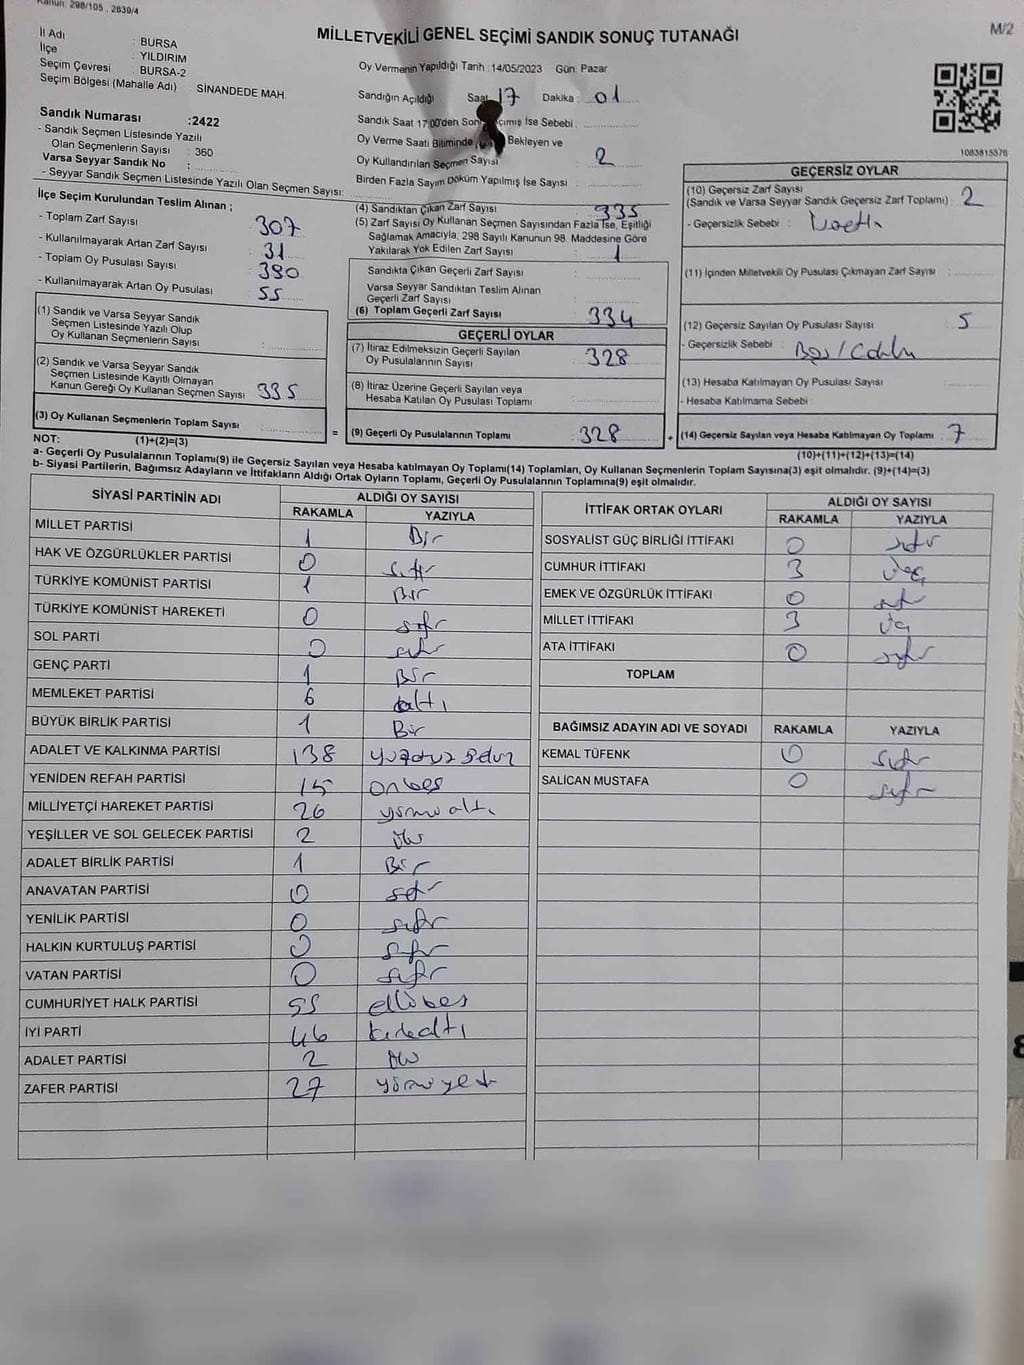 Kanun: 298/105 , 2839/4
MİLLETVEKİLİ GENEL SEÇİMİ SANDIK SONUÇ TUTANAĞI
M/2
İl Adı : BURSA
İlçe : YILDIRIM
Seçim Çevresi : BURSA-2
Seçim Bölgesi (Mahalle Adı) : SİNANDEDE MAH.
Sandık Numarası :2422
- Sandık Seçmen Listesinde Yazılı
Olan Seçmenlerin Sayısı : 360
Varsa Seyyar Sandık No :
- Seyyar Sandık Seçmen Listesinde Yazılı Olan Seçmen Sayısı:
Oy Vermenin Yapıldığı Tarih :14/05/2023 Gün: Pazar
Sandığın Açıldığı Saat 17 Dakika : 01
Sandık Saat 17:00'den Son
Oy Verme Saati Bitiminde Bekleyen ve
Oy Kullandırılan Seçmen Sayısı 2
Birden Fazla Sayım Döküm Yapılmış İse Sayısı :
1083815576
İlçe Seçim Kurulundan Teslim Alınan ;
- Toplam Zarf Sayısı : 307
- Kullanılmayarak Artan Zarf Sayısı : 31
- Toplam Oy Pusulası Sayısı : 390
- Kullanılmayarak Artan Oy Pusulası : 55
(1) Sandık ve Varsa Seyyar Sandık
Seçmen Listesinde Yazılı Olup
Oy Kullanan Seçmenlerin Sayısı :
(2) Sandık ve Varsa Seyyar Sandık
Seçmen Listesinde Kayıtlı Olmayan
Kanun Gereği Oy Kullanan Seçmen Sayısı : 335
(3) Oy Kullanan Seçmenlerin Toplam Sayısı :
(1)+(2)=(3)
(4) Sandıktan Çıkan Zarf Sayısı : 335
(5) Zarf Sayısı Oy Kullanan Seçmen Sayısından Fazla İse, Eşitliği
Sağlamak Amacıyla; 298 Sayılı Kanunun 98. Maddesine Göre
Yakılarak Yok Edilen Zarf Sayısı : 1
Sandıkta Çıkan Geçerli Zarf Sayısı :
Varsa Seyyar Sandıktan Teslim Alınan
Geçerli Zarf Sayısı :
(6) Toplam Geçerli Zarf Sayısı : 334
GEÇERLİ OYLAR
(7) İtiraz Edilmeksizin Geçerli Sayılan
Oy Pusulalarının Sayısı : 328
(8) İtiraz Üzerine Geçerli Sayılan veya
Hesaba Katılan Oy Pusulası Toplamı :
= (9) Geçerli Oy Pusulalarının Toplamı : 328
GEÇERSİZ OYLAR
(10) Geçersiz Zarf Sayısı
(Sandık ve Varsa Seyyar Sandık Geçersiz Zarf Toplamı) : 2
- Geçersizlik Sebebi :
(11) İçinden Milletvekili Oy Pusulası Çıkmayan Zarf Sayısı :
(12) Geçersiz Sayılan Oy Pusulası Sayısı : 5
- Geçersizlik Sebebi :
(13) Hesaba Katılmayan Oy Pusulası Sayısı :
- Hesaba Katılmama Sebebi :
+ (14) Geçersiz Sayılan veya Hesaba Katılmayan Oy Toplamı : 7
(10)+(11)+(12)+(13)=(14)
NOT:
a- Geçerli Oy Pusulalarının Toplamı(9) ile Geçersiz Sayılan veya Hesaba katılmayan Oy Toplamı(14) Toplamları, Oy Kullanan Seçmenlerin Toplam Sayısına(3) eşit olmalıdır. (9)+(14)=(3)
b- Siyasi Partilerin, Bağımsız Adayların ve İttifakların Aldığı Ortak Oyların Toplamı, Geçerli Oy Pusulalarının Toplamına(9) eşit olmalıdır.
SİYASİ PARTİNİN ADI ALDIĞI OY SAYISI
RAKAMLA YAZIYLA
MİLLET PARTİSİ 1 Bir
HAK VE ÖZGÜRLÜKLER PARTİSİ 0 sıfır
TÜRKİYE KOMÜNİST PARTİSİ 1 Bir
TÜRKİYE KOMÜNİST HAREKETİ 0 sıfır
SOL PARTİ 0 sıfır
GENÇ PARTİ 1 Bir
MEMLEKET PARTİSİ 6 altı
BÜYÜK BİRLİK PARTİSİ 1 Bir
ADALET VE KALKINMA PARTİSİ 138 yüzotuzsekiz
YENİDEN REFAH PARTİSİ 15 onbeş
MİLLİYETÇİ HAREKET PARTİSİ 26 yirmialtı
YEŞİLLER VE SOL GELECEK PARTİSİ 2 iki
ADALET BİRLİK PARTİSİ 1 Bir
ANAVATAN PARTİSİ 0 sıfır
YENİLİK PARTİSİ 0 sıfır
HALKIN KURTULUŞ PARTİSİ 0 sıfır
VATAN PARTİSİ 0 sıfır
CUMHURİYET HALK PARTİSİ 55 ellibeş
İYİ PARTİ 46 kırkaltı
ADALET PARTİSİ 2 iki
ZAFER PARTİSİ 27 yirmiyedi
İTTİFAK ORTAK OYLARI ALDIĞI OY SAYISI
RAKAMLA YAZIYLA
SOSYALİST GÜÇ BİRLİĞİ İTTİFAKI 0 sıfır
CUMHUR İTTİFAKI 3 üç
EMEK VE ÖZGÜRLÜK İTTİFAKI 0 sıfır
MİLLET İTTİFAKI 3 üç
ATA İTTİFAKI 0 sıfır
TOPLAM
BAĞIMSIZ ADAYIN ADI VE SOYADI RAKAMLA YAZIYLA
KEMAL TÜFENK 0 sıfır
SALİCAN MUSTAFA 0 sıfır